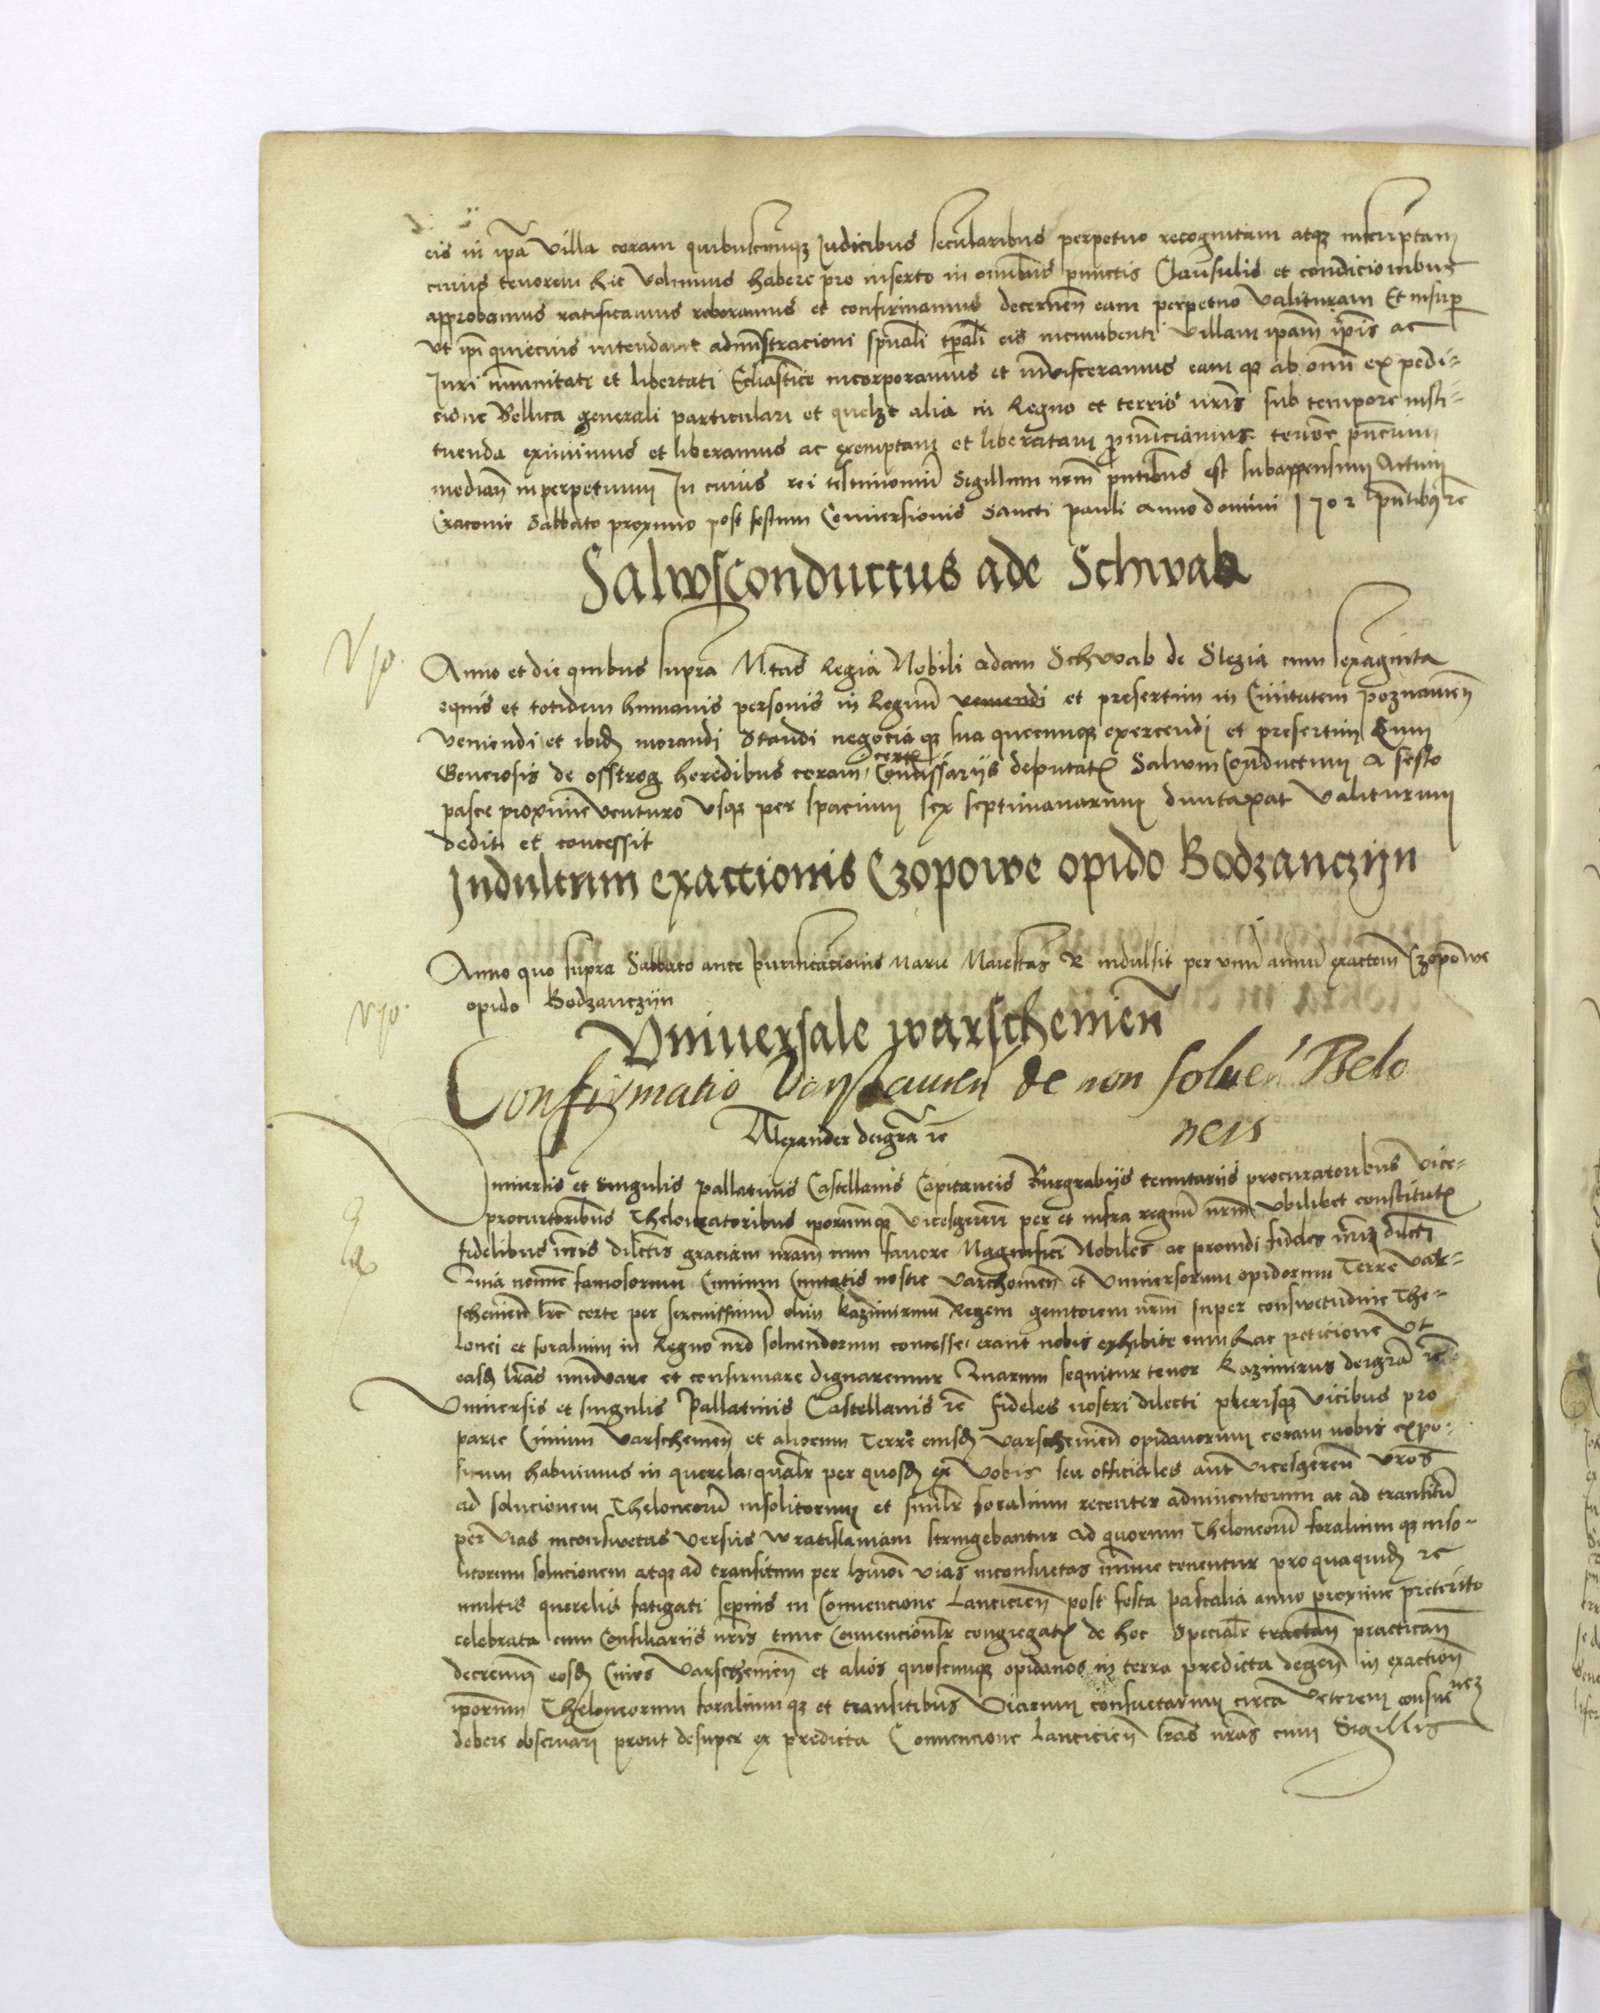 eis in ipa villa coram quibuscumqz Iudicibus secularibus perpetuo recognitam atqz inscriptam
cuius tenorem hic volumus habere pro inserto in omnibus punctis Clausulis et condicionibus
approbamus ratificamus roboramus et confirmamus decernen eam perpetuo valituram Et insup
vt ipi quiecius intendant admnstracioni spuali tpali eis incumbenti villam ipam ipis ac
Iuri immunitati et libertati Ecliastice incorporamus et invisceramus eam qz ab omni expedi-
cione Bellica generali particulari et qualzt alia in Regno et terris nris sub tempore insti-
tuenda eximimus et liberamus ac exemptam et liberatam pnunciamus tenore pncium
median in perpetuum In cuius rei testimonium Sigillum nrm pntibus est subappensum Actum
Cracovie Sabbato proximo post festum Conversionis Sancti pauli anno domini 1502 pntibus rc
Salwsconductus ade Schwab
Anno et die quibus supra M.tas Regia Nobili Adam Schwab de Slezia cum sexaginta
equis et totidem humanis personis in Regnum veniendi et presertim in Civitatem poznanien
veniendi et ibid morandi Standi negocia qz sua quecumqz exercendi et presertim Cum
Generosis de Osstrog heredibus coram certis Comissariis deputat Salvum Conductum A festo
pasce proxime venturo vsqz per spacium sex septimanarum duntaxat valiturum
dedit et concessit
Indultum exactionis Czopowe opido Bodzanczyn
Anno quo supra Sabbato ante purificacionis Marie Maiestas R indulsit per vnu annu exactem Czopowe
opido Bodzanczyn
Vniuersale warschenien
Confirmatio Varschauien de non soluen Thelo
neis
Alexander dei gra rc
Vniuersis et singulis pallatinis Castellanis Capitaneis Burgrabiis tenutariis procuratoribus vice-
procuratoribus Theloneatoribus iporumqz vicesgeren per et infra regnu nrm vbilibet constitut
fidelibus nris dilectis graciam nram cum favore Magnifici Nobiles ac providi fideles nri dilecti
Quia nomine famosorum Civium Civitatis nostre Varschovien et vniversorum opidorum Terre var-
schevien lre certe per serenissimu olim Kazimirum Regem genitorem nrm super conswetudine The-
lonei et foralium in Regno nro solvendorum concesse erant nobis exhibite cum hac peticione vt
easd lras innovare et confirmare dignaremur Quarum sequitur tenor Kazimirus dei gra rc
Vniversis et singulis Pallatinis Castellanis rc fideles nostri dilecti plerisqz vicibus pro
parte Civium Varschevien et aliorum Terre eiusd Varschevien opidanorum coram nobis expo-
situm habuimus in querela qualr per quosd ex vobis seu officiales aut vicesgeren vros
ad solucionem Theloneoru insolitorum et similr foralium recenter adinventorum ac ad transitu
per vias inconswetas versus wratislaviam stringebantur Ad quorum Theloneoru foralium qz inso-
litorum solucionem atqz ad transitum per hmoi vias inconsuetas minime tenentur pro quaquid rc
multis querelis fatigati sepius in Convencione Lancicien post festa pascalia anno proxime preterito
celebrata cum Consiliariis nris tunc Convencionlr congregat de hoc specialr tractan practican
decrevim eosd Cives Varschevien et alios quoscumqz opidanos in terra predicta degen in exaction
iporum Theloneorum foralium qz et transitibus viarum consuetarum circa veterem consue nez
debere observari prout desuper ex predicta Convencione Lancicien lras nras cum Sigillis